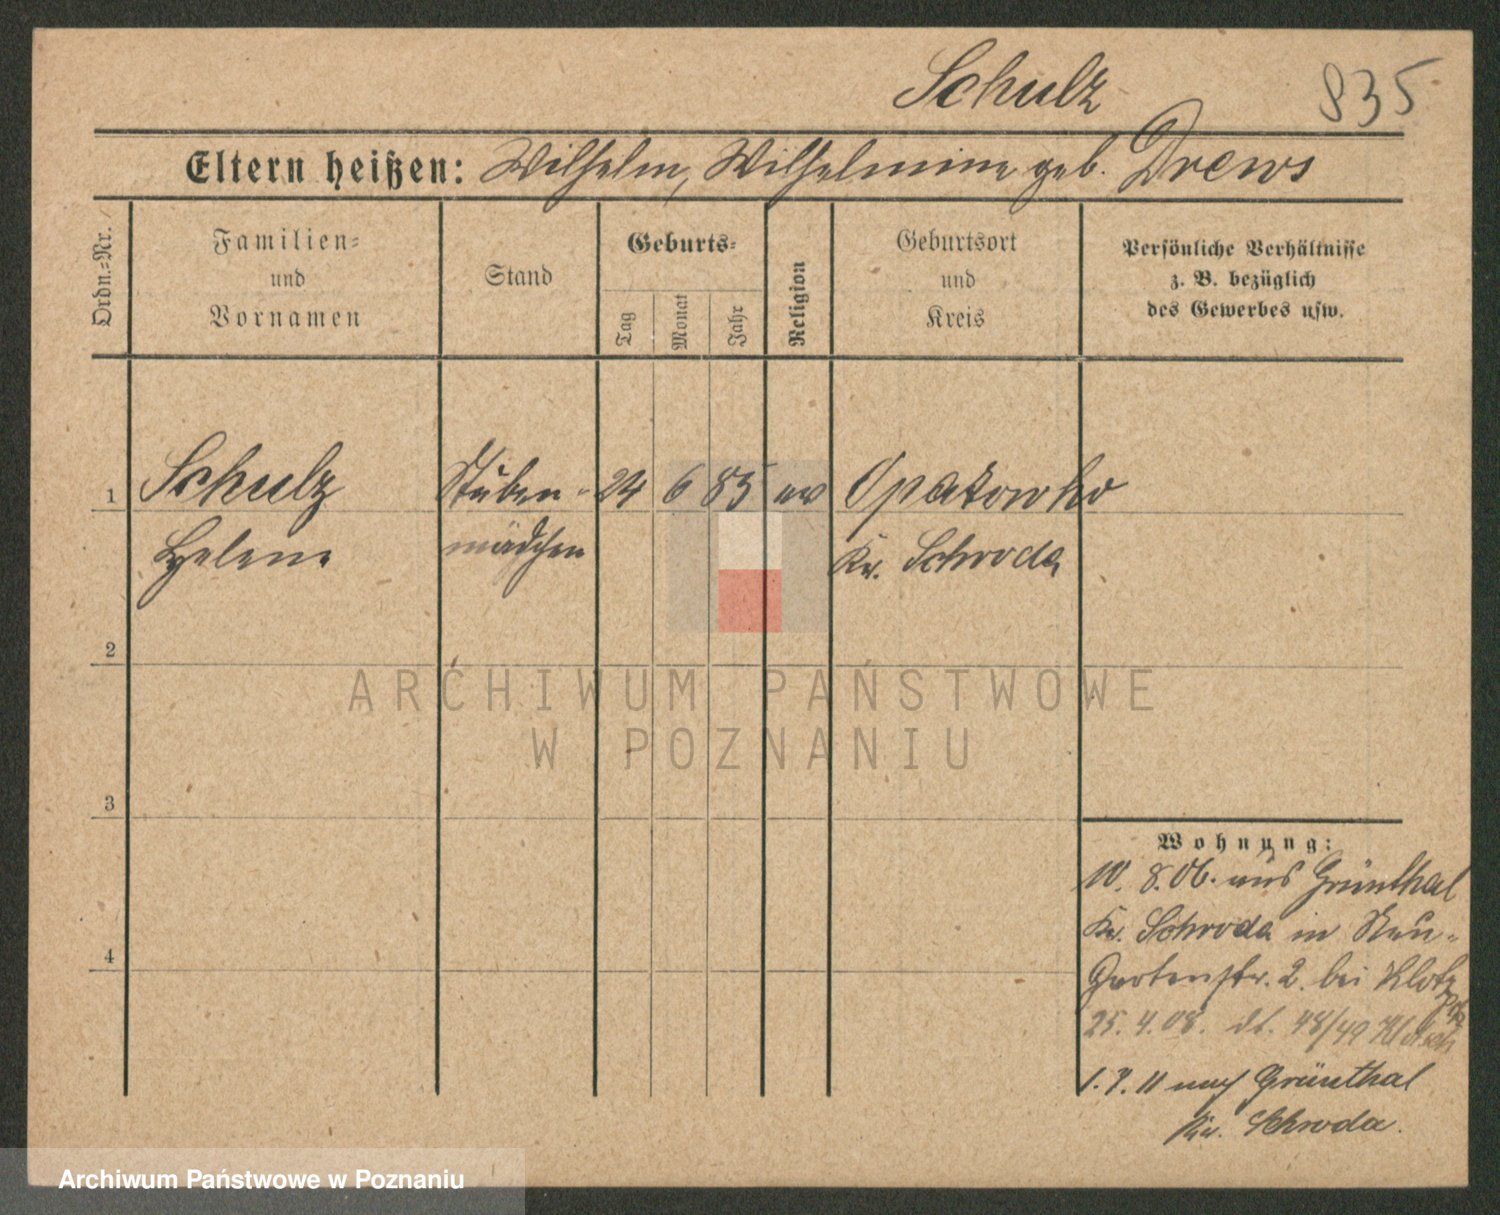 Schulz
835
Eltern heißen: Wilhelm, Wilhelmine geb. Drews
Ordn.-Nr.
Familien-
und
Vornamen
Stand
Geburts-
Tag
Monat
Jahr
Religion
Geburtsort
und
Kreis
Persönliche Verhältnisse
z. B. bezüglich
des Gewerbes usw.
1
Schulz
Helene
Stuben-
mädchen
24
6
85
ev
Opatowko
Kr. Schroda
2
3
4
Wohnung:
10. 8. 06. aus Grünthal
Kr. Schroda in Neu-
Gartenstr. 2. bei Klotzsch
25. 4. 08. dt. 48/49 Klotzsch
1. 4. 11 nach Grünthal
Kr. Schroda.
ARCHIWUM PAŃSTWOWE
W POZNANIU
Archiwum Państwowe w Poznaniu